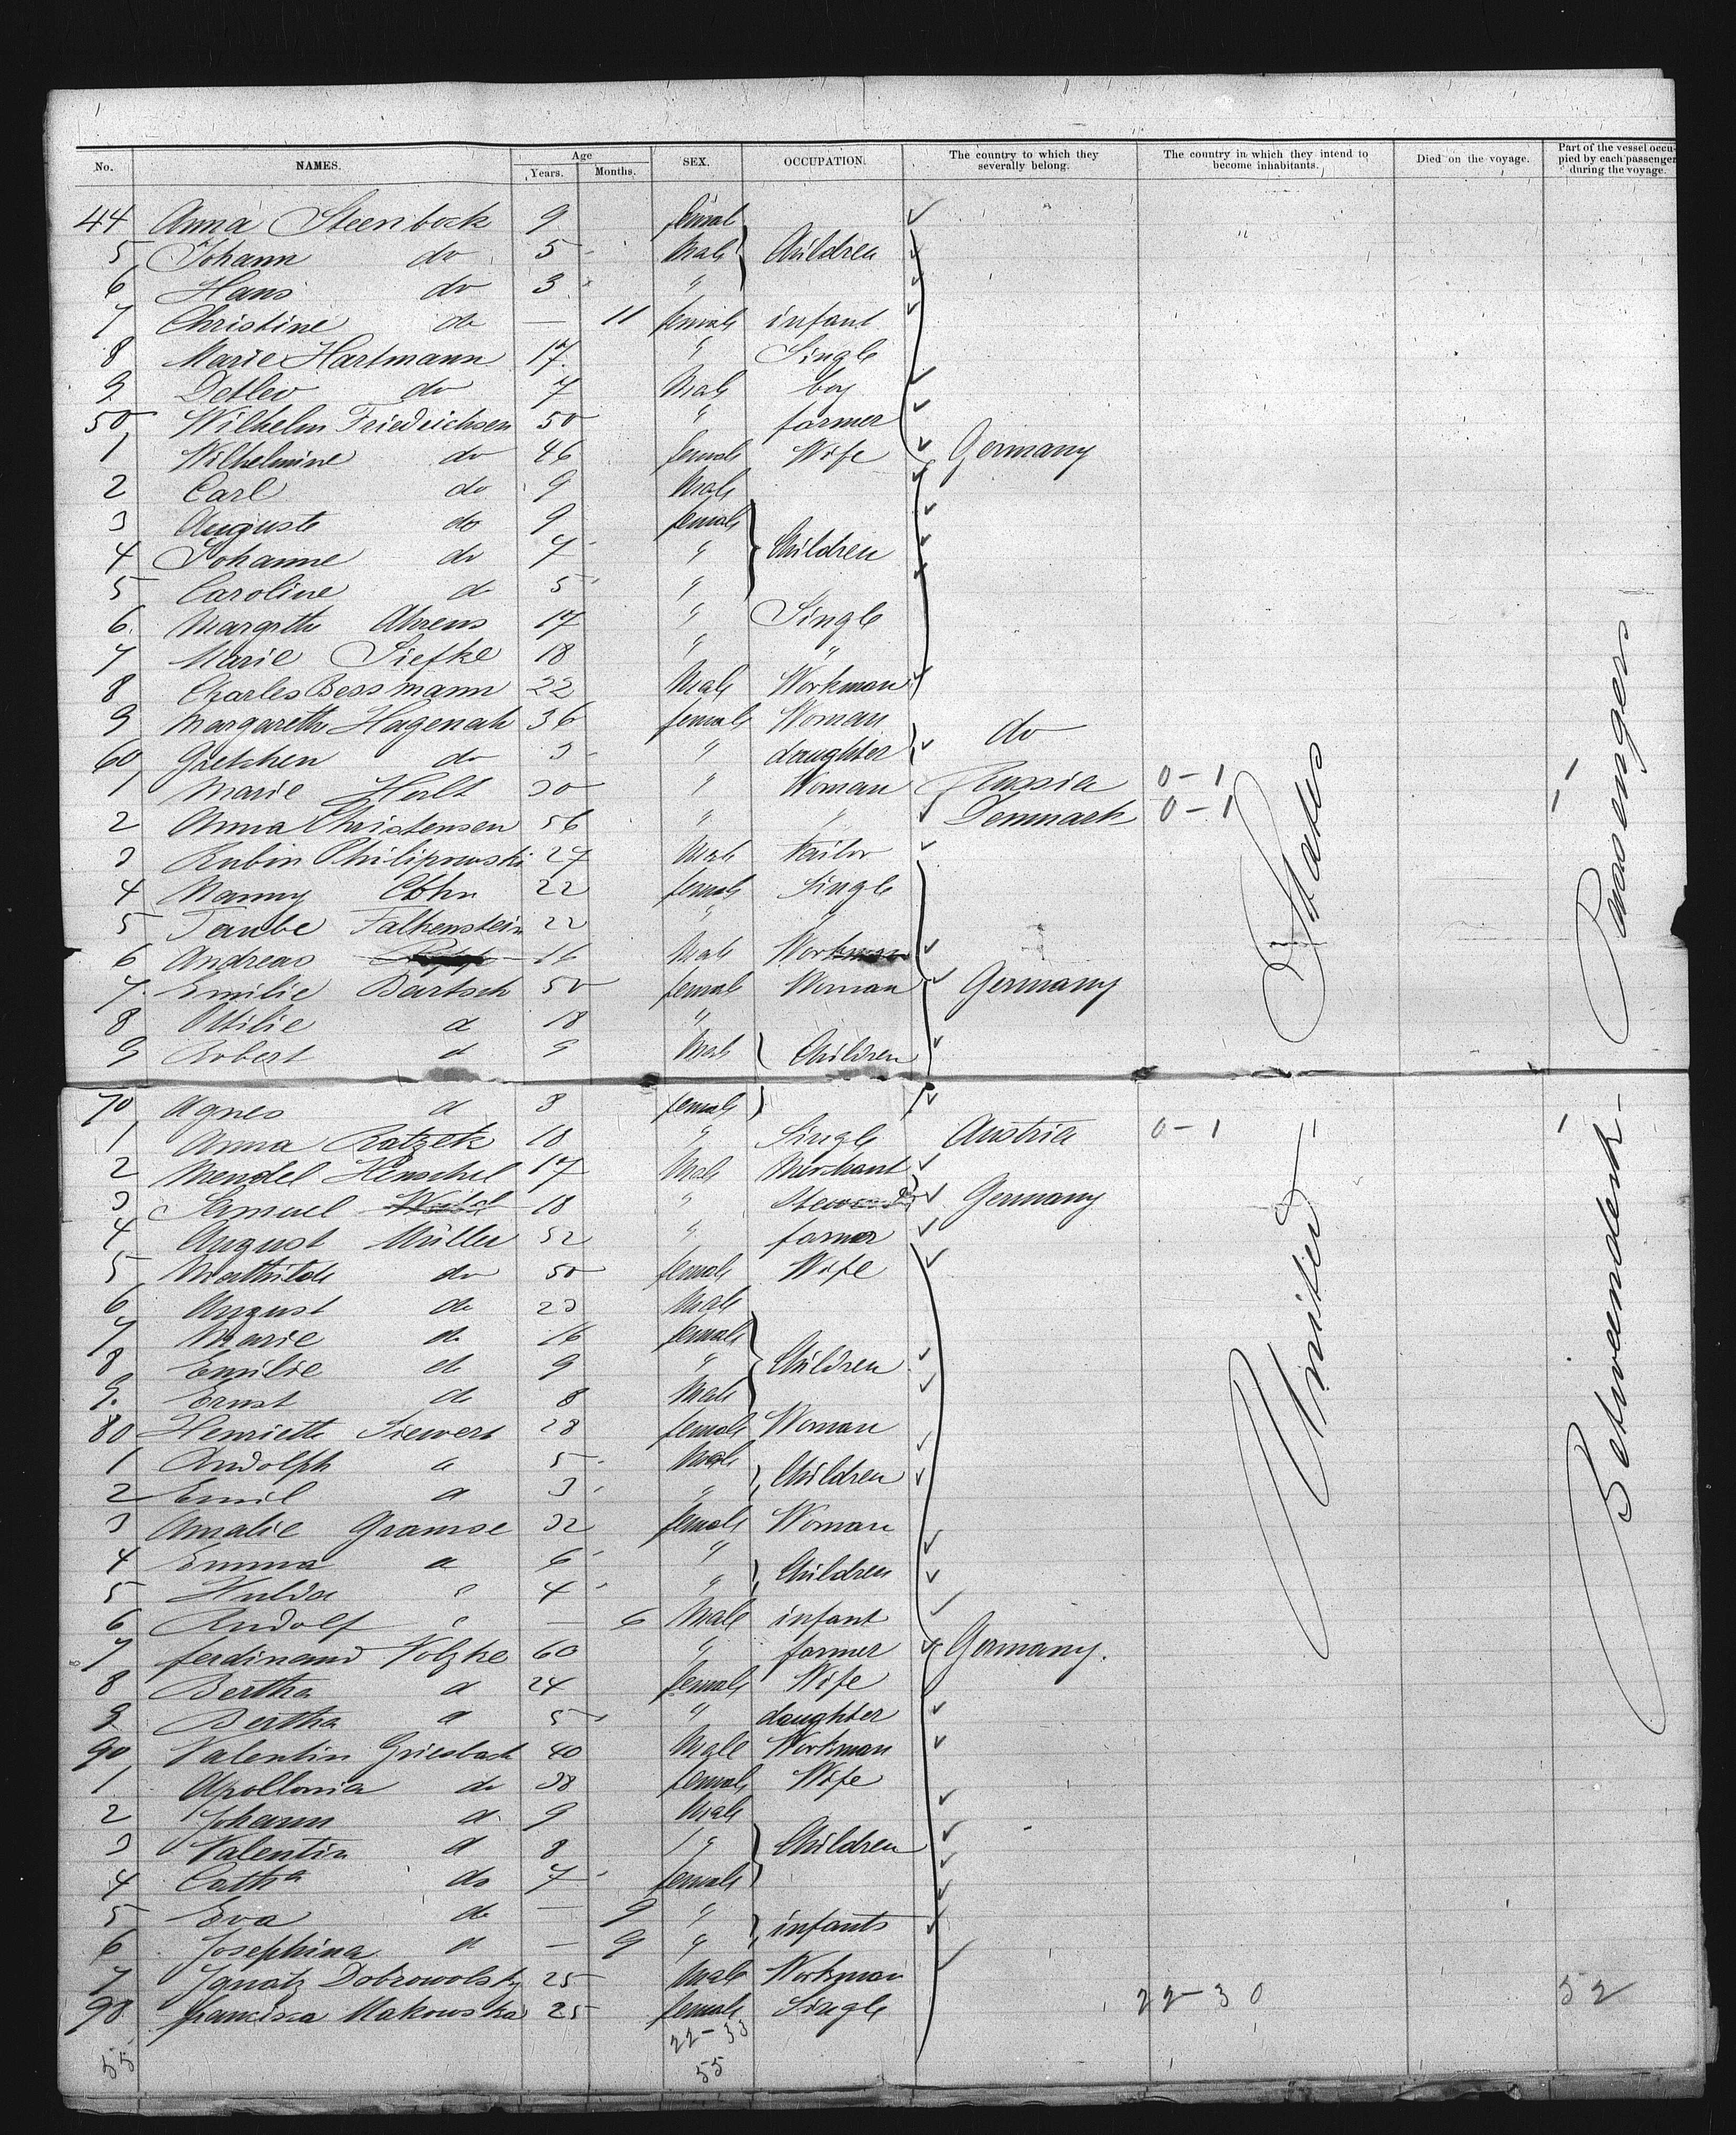 No. NAMES. Age Years. Months. SEX. OCCUPATION. The country to which they severally belong. The country in which they intend to become inhabitants. Died on the voyage. Part of the vessel occupied by each passenger during the voyage.
44 Anna Steenbock 9 female
5 Johann do 5 Male Children
6 Hans do 3 "
7 Christine do — 11 female infant
8 Marie Hartmann 17 " Single
9 Detlev do 7 Male boy
50 Wilhelm Friedrichsen 50 " farmer
1 Wilhelmine do 46 female Wife Germany
2 Carl do 9 Male
3 Auguste do 9 female
4 Johanne do 7 " Children
5 Caroline do 5 "
6 Margrethe Ahrens 17 " Single
7 Marie Siefke 18 " "
8 Charles Bessmann 22 Male Workman
9 Margarethe Hagenah 36 female Woman do
60 Gretchen do 3 " daughter
1 Marie Holt 30 " Woman Russia 0-1 1
2 Anna Christensen 56 " " Denmark 0-1 1
3 Rubin Philipowski 27 Male Tailor
4 Nanny Cohn 22 female Single
5 Taube Falkenstein 22 " "
6 Andreas 16 Male Workman
7 Emilie Bartsch 50 female Woman Germany
8 Ottilie d 18 "
9 Robert d 9 Male Children
70 Agnes d 8 female
1 Anna Ratzek 18 " Single Austria 0-1 1
2 Mendel Henschel 17 Male Merchant
3 Samuel 18 " Germany
4 August Müller 52 " farmer
5 Mathilde do 50 female Wife
6 August do 23 Male
7 Marie do 16 female
8 Emilie d 9 " Children
9. Ernst do 8 Male
80 Henriette Siewert 28 female Woman
1 Rudolph d 5 Male Children
2 Emil d 3 "
3 Amalie Gramse 32 female Woman
4 Emma d 6 " Children
5 Hulda " 4 "
6 Rudolf " — 6 Male infant
7 ferdinand Volzke 60 " farmer Germany.
8 Bertha d 24 female Wife
9 Bertha d 5 " daughter
90 Valentin Griesbach 40 Male Workman
1 Apollonia do 38 female Wife
2 Johann d 9 Male
3 Valentin d 8 " Children
4 Cath^a do 7 female
5 Eva do — 9 " infants
6 Josephina d — 9 "
7 Ignatz Dobrowolsky 25 Male Workman
98 francisca Makowska 25 female Single
22-30 52
22-33
55 55
United States
Betweendeck-Passengers